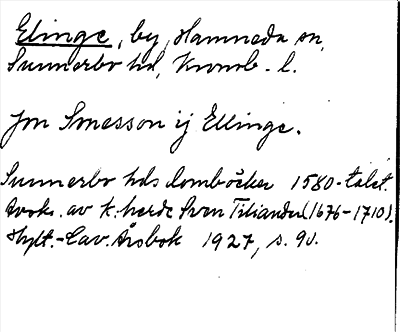 Elinge, by, Hamneda sn,
Sunnerbo hd, Kronob. l.
Jon Smesson ij Ellinge.
Sunnerbo hds domböcker 1580-talet.
Avskr. av k. herde Sven Tiliander (1676-1710).
Hylt.-Cav. Årsbok 1927, s. 90.